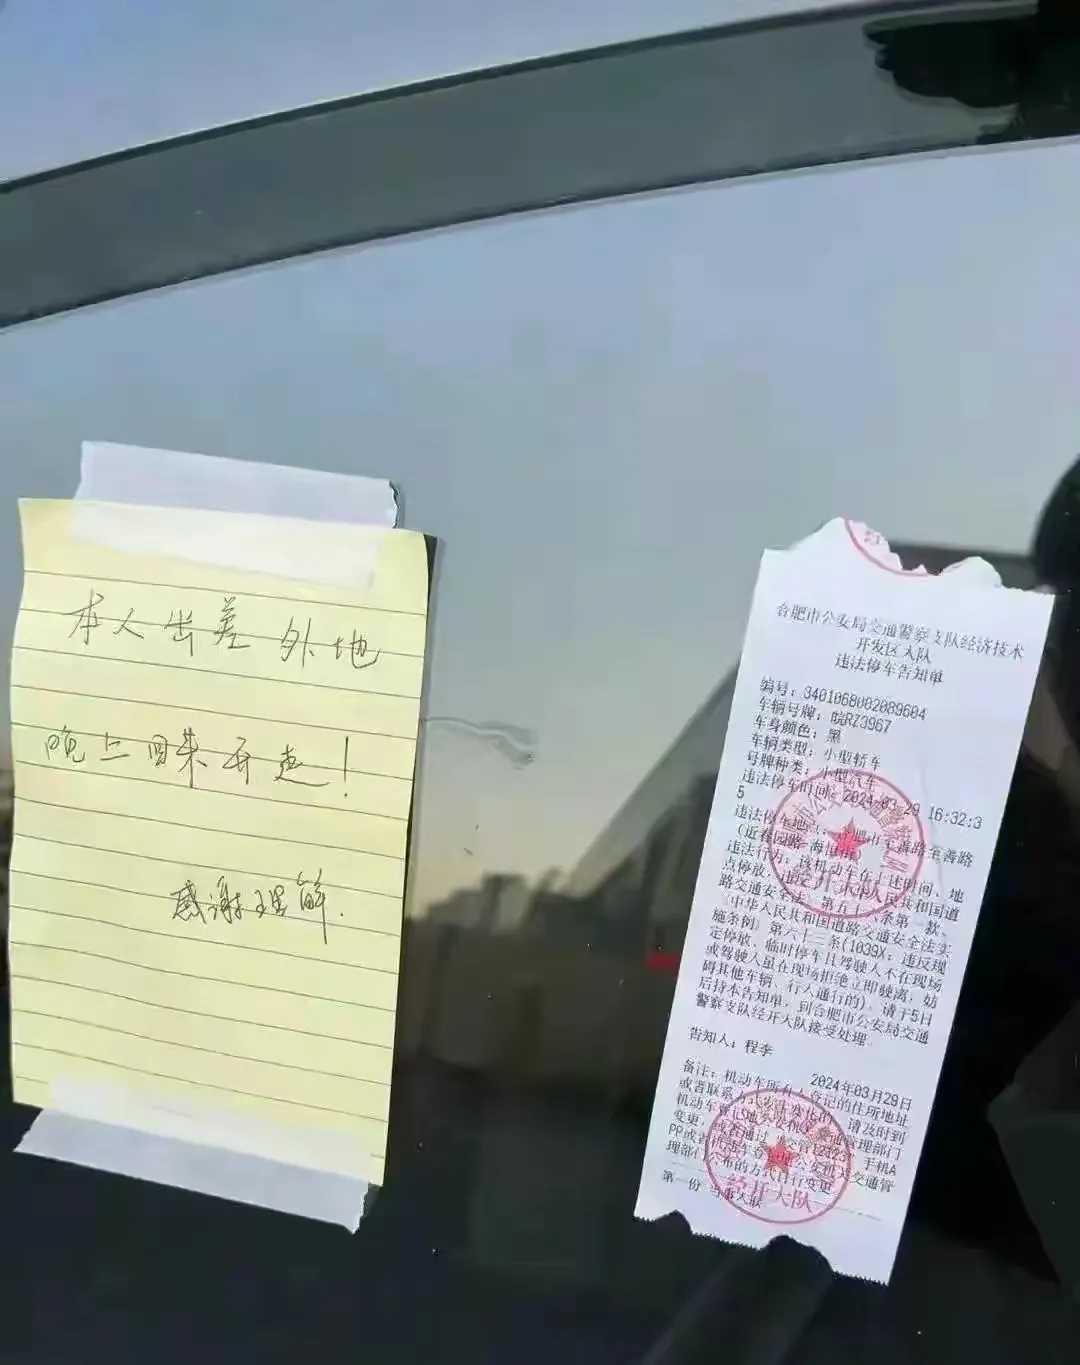 本人出差外地
晚上回来开走！
感谢理解.
合肥市公安局交通警察支队经济技术
开发区大队
违法停车告知单
编号：3401068002089604
车辆号牌：皖RZ3967
车身颜色：黑
车辆类型：小型轿车
号牌种类：小型汽车
违法停车时间：2024-03-29 16:32:3
5
违法停车地点：合肥市至善路至善路
（近春园路-海恒
违法行为：该机动车在上述时间、地
点停放，违反《中华人民共和国道
路交通安全法》第五十六条第一款、
《中华人民共和国道路交通安全法实
施条例》第六十三条(1039X：违反规
定停放、临时停车且驾驶人不在现场
或驾驶人虽在现场拒绝立即驶离，妨
碍其他车辆、行人通行的)。请于5日
后持本告知单，到合肥市公安局交通
警察支队经开大队接受处理。
告知人：程李
2024年03月29日
备注：机动车所有人登记的住所地址
或者联系方式发生变化的，请及时到
机动车登记地公安机关交通管理部门
变更，或者通过"交管12123"手机A
PP或者机动车登记地公安机关交通管
理部门公布的方式自行变更
第一份 当事人联
经开大队
经开大队